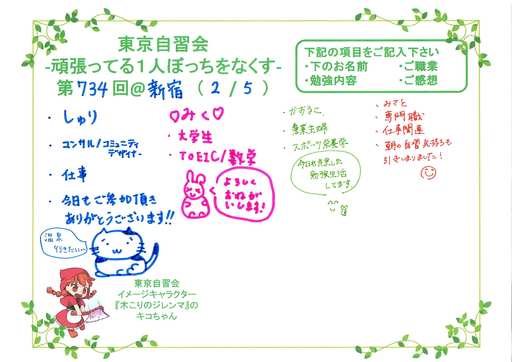 東京自習会
-頑張ってる1人ぼっちをなくす-
第734回@新宿(2/5)
下記の項目をご記入下さい
・下のお名前 ・ご職業
・勉強内容 ・ご感想
・しゅり
・コンサル/コミュニティ
デザイナー
・仕事
・今日もご参加頂き
ありがとうございます!!
温泉
行きたい
♡みく♡
・大学生
・TOEIC/数学
よろしく
おねが
いします!
・かおるこ
・専業主婦
・スポーツ栄養学
今日も充実した
勉強生活
してます
・みさと
・専門職
・仕事関連
・朝の自習
東京自習会
イメージキャラクター
『木こりのジレンマ』の
キコちゃん